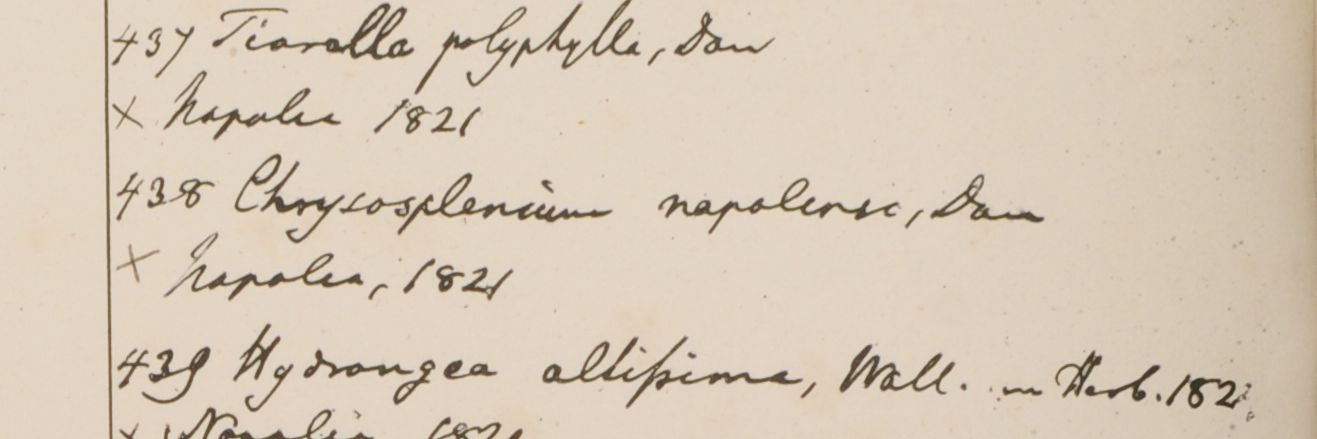 437 Tiarella polyphylla, Don
× Napalia 1821
438 Chrysosplenium napalense, Don
× Napalia, 1821
439 Hydrangea altissima, Wall. in Herb. 182
× Napalia 1821